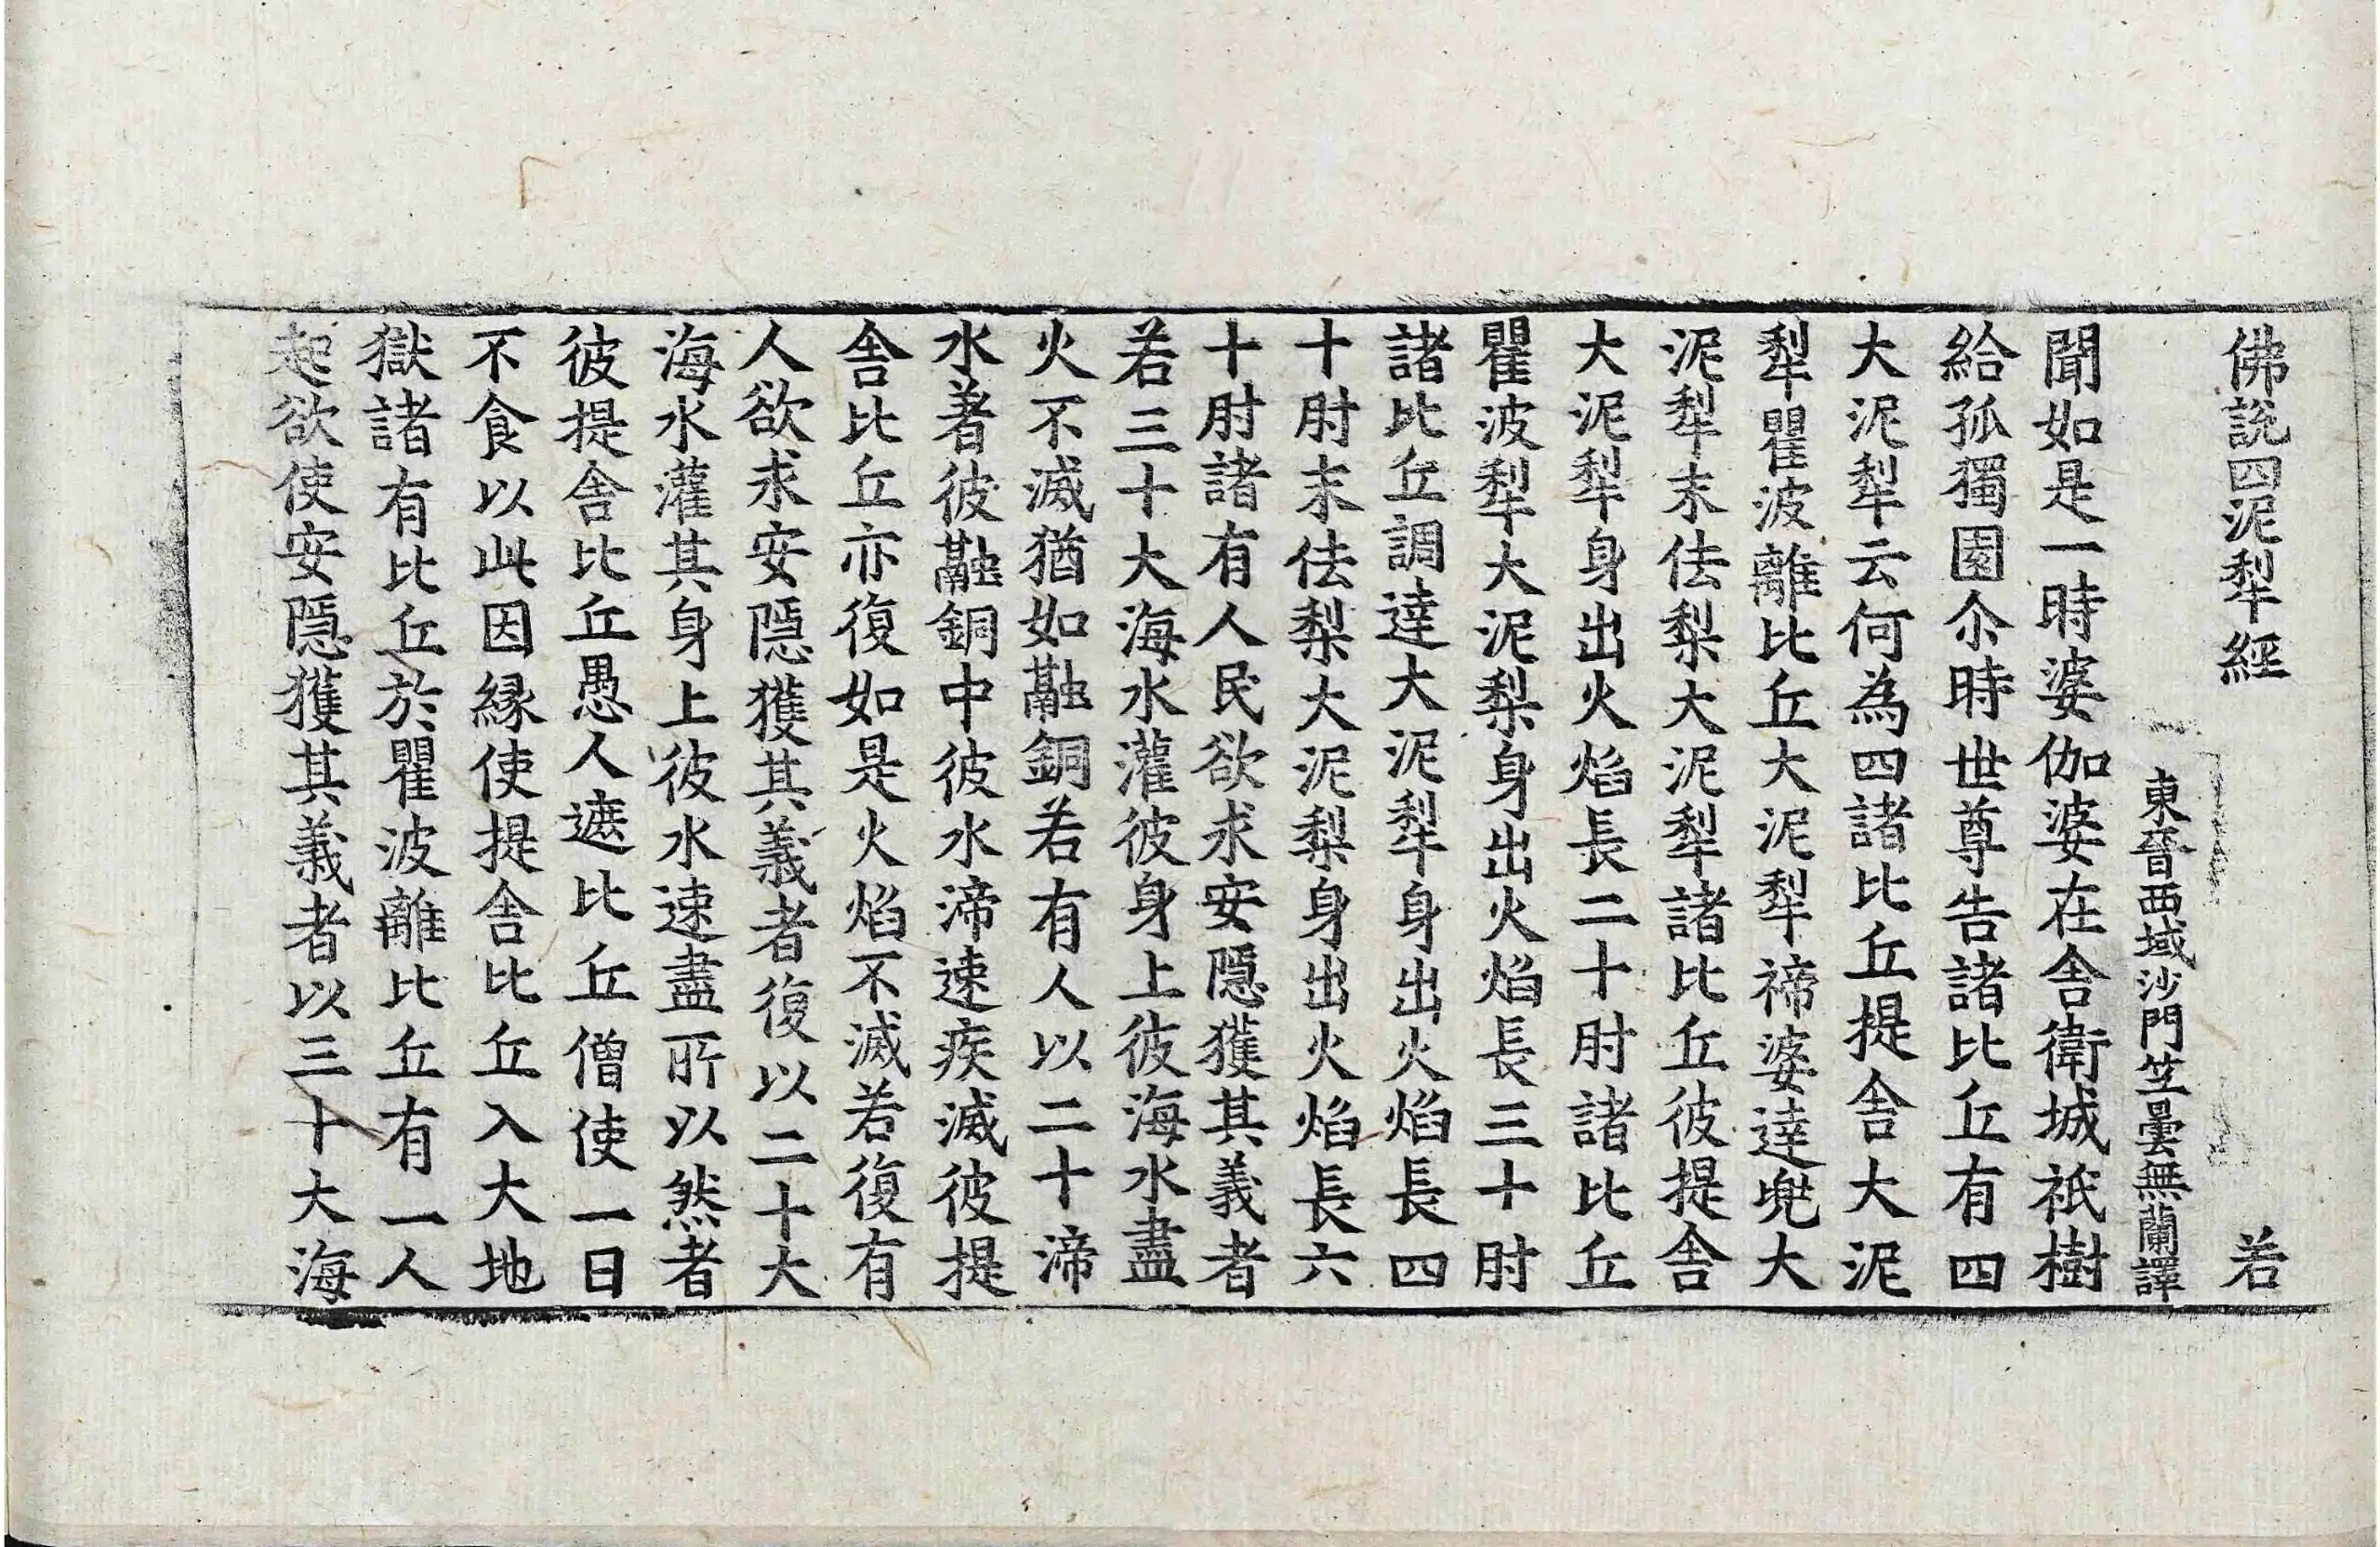 佛說四泥犁經 若
東晉西域沙門竺曇無蘭譯
聞如是一時婆伽婆在舍衛城祇樹
給孤獨園尒時世尊告諸比丘有四
大泥犁云何為四諸比丘提舍大泥
犁瞿波離比丘大泥犁褅婆達兜大
泥犁末佉梨大泥犁諸比丘彼提舍
大泥犁身出火焰長二十肘諸比丘
瞿波犁大泥梨身出火焰長三十肘
諸比丘調達大泥犁身出火焰長四
十肘末佉梨大泥梨身出火焰長六
十肘諸有人民欲求安隱獲其義者
若三十大海水灌彼身上彼海水盡
火不滅猶如融銅若有人以二十渧
水著彼融銅中彼水渧速疾滅彼提
舍比丘亦復如是火焰不滅若復有
人欲求安隱獲其義者復以二十大
海水灌其身上彼水速盡所以然者
彼提舍比丘愚人遮比丘僧使一日
不食以此因緣使提舍比丘入大地
獄諸有比丘於瞿波離比丘有一人
起欲使安隱獲其義者以三十大海